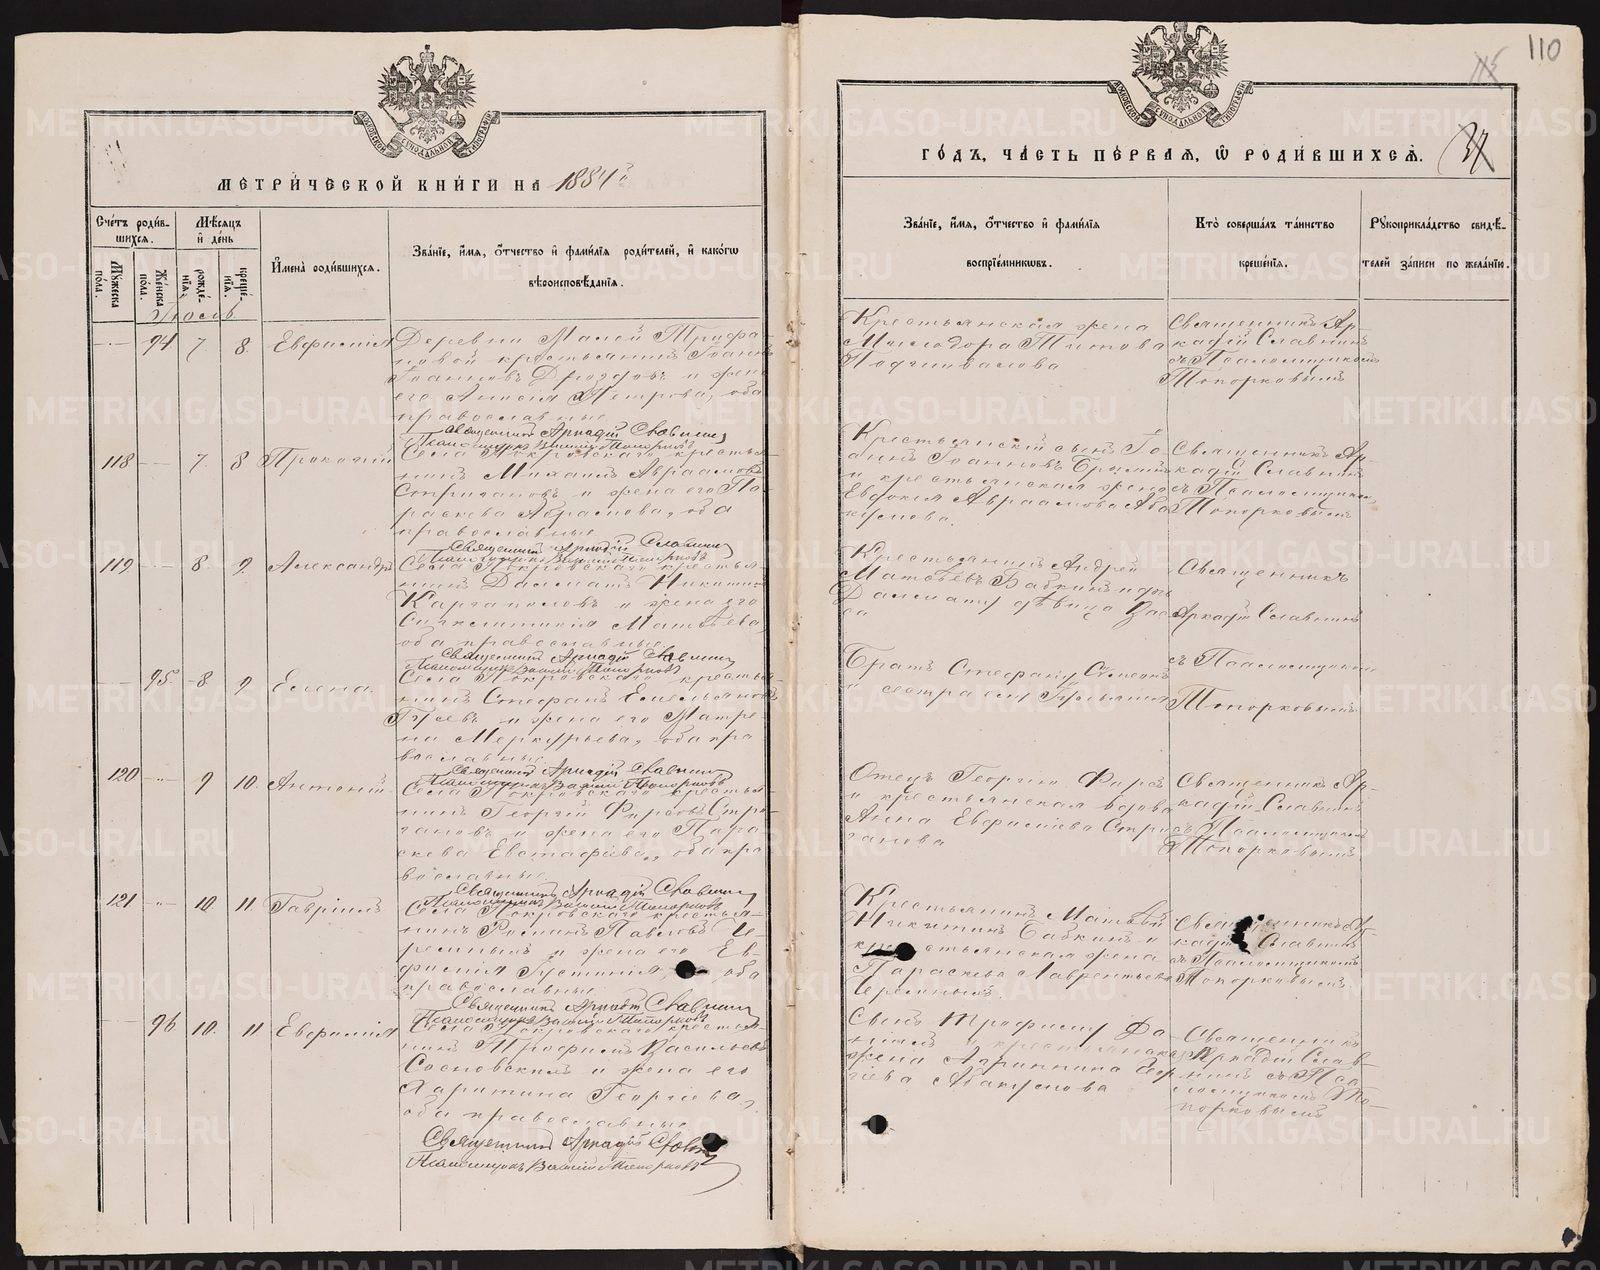 110
МЕТРИ́ЧЕСКОЙ КНИ́ГИ НА 1884й
ГО́ДЪ, ЧА́СТЬ ПЕ́РВАЯ, Ѿ РОДИ́ВШИХСѦ.
37
Сче́тъ роди́в-
шихсѧ.
Мѣ́сѧцъ
и҆ де́нь
Мꙋ́жеска
по́ла.
Же́нска
по́ла.
рожде́-
нїѧ.
креще́-
нїѧ.
И҆мена̀ роди́вшихсѧ.
Зва́нїе, и҆́мѧ, о҆́тчество и҆ фами́лїѧ роди́телей, и҆ како́гѡ
вѣроисповѣ́данїѧ.
Зва́нїе, и҆́мѧ, о҆́тчество и҆ фами́лїѧ
воспрїе́мникѡвъ.
Кто̀ соверша́лъ та́инство
креще́нїѧ.
Рꙋкоприкла́дство свидѣ́-
телей за́писи по жела́нїю.
94 7 8. Евфимія
Деревни Малой Трифа-
новой крестьянинъ Іоаннъ
Іоанновъ Дроздовъ и жена
его Анисія Петрова, оба
православные
Священникъ Аркадій Славнинъ
Псаломщикъ Василій Топорковъ
Крестьянская жена
Титова
Священникъ Ар-
кадій Славнинъ
съ Псаломщикомъ
Топорковымъ
118 7. 8 Прокопій
Села Покровскаго кресть-
янинъ Михаилъ Авраамовъ
и жена его Па-
раскева Абрамова, оба
православные
Священникъ Аркадій Славнинъ
Псаломщикъ Василій Топорковъ
Крестьянскій сынъ Іо-
аннъ Іоанновъ
и крестьянская жена
Евдокія Авраамова Аба-
кумова.
Священникъ Ар-
кадій Славнинъ
съ Псаломщикомъ
Топорковымъ
119 8. 9. Александръ
Села Покровскаго крестья-
нинъ Далматъ Никитинъ
Каргаполовъ и жена его
Синклитикія Матвѣева,
оба православные
Священникъ Аркадій Славнинъ
Псаломщикъ Василій Топорковъ
Крестьянинъ Андрей
Матвѣевъ Бабкинъ и дочь
Далмату дѣвица
Священникъ
Аркадій Славнинъ
95. 8 9 Елена
Села Покровскаго крестья-
нинъ Стефанъ Емельяновъ
Гусевъ и жена его Матре-
на Меркурьева, оба пра-
вославные
Священникъ Аркадій Славнинъ
Псаломщикъ Василій Топорковъ
Братъ Стефану
и сестра ему
съ Псаломщикомъ
Топорковымъ
120 9 10. Антоній
Села Покровскаго крестья-
нинъ Георгій Фирсовъ Стро-
гановъ и жена его Пара-
скева Евстафіева, оба пра-
вославные
Священникъ Аркадій Славнинъ
Псаломщикъ Василій Топорковъ
Отецъ Георгію Фирсъ
и крестьянская вдова
Анна Евфиміева Стро-
ганова
Священникъ Ар-
кадій Славнинъ
съ Псаломщикомъ
Топорковымъ
121 10 11. Гавріилъ
Села Покровскаго крестья-
нинъ Романъ Павловъ Че-
ремныхъ и жена его Ев-
фимія Іустинія оба
православные
Священникъ Аркадій Славнинъ
Псаломщикъ Василій Топорковъ
Крестьянинъ Матвѣй
Никитинъ Бабкинъ и
крестьянская жена
Параскева Лаврентьева
Черемныхъ.
Священникъ Ар-
кадій Славнинъ
съ Псаломщикомъ
Топорковымъ
96 10. 11 Евфимія
Села Покровскаго крестья-
нинъ Трофимъ Васильевъ
Сосновскихъ и жена его
Харитина Георгіева,
оба православные
Священникъ Аркадій Славнинъ
Псаломщикъ Василій Топорковъ
Сынъ Трофиму Да-
ніилъ и крестьянская
жена Агриппина Геор-
гіева Абакумова
Священникъ
Аркадій Слав-
нинъ съ Пса-
ломщикомъ То-
порковымъ
METRIKI.GASO-URAL.RU